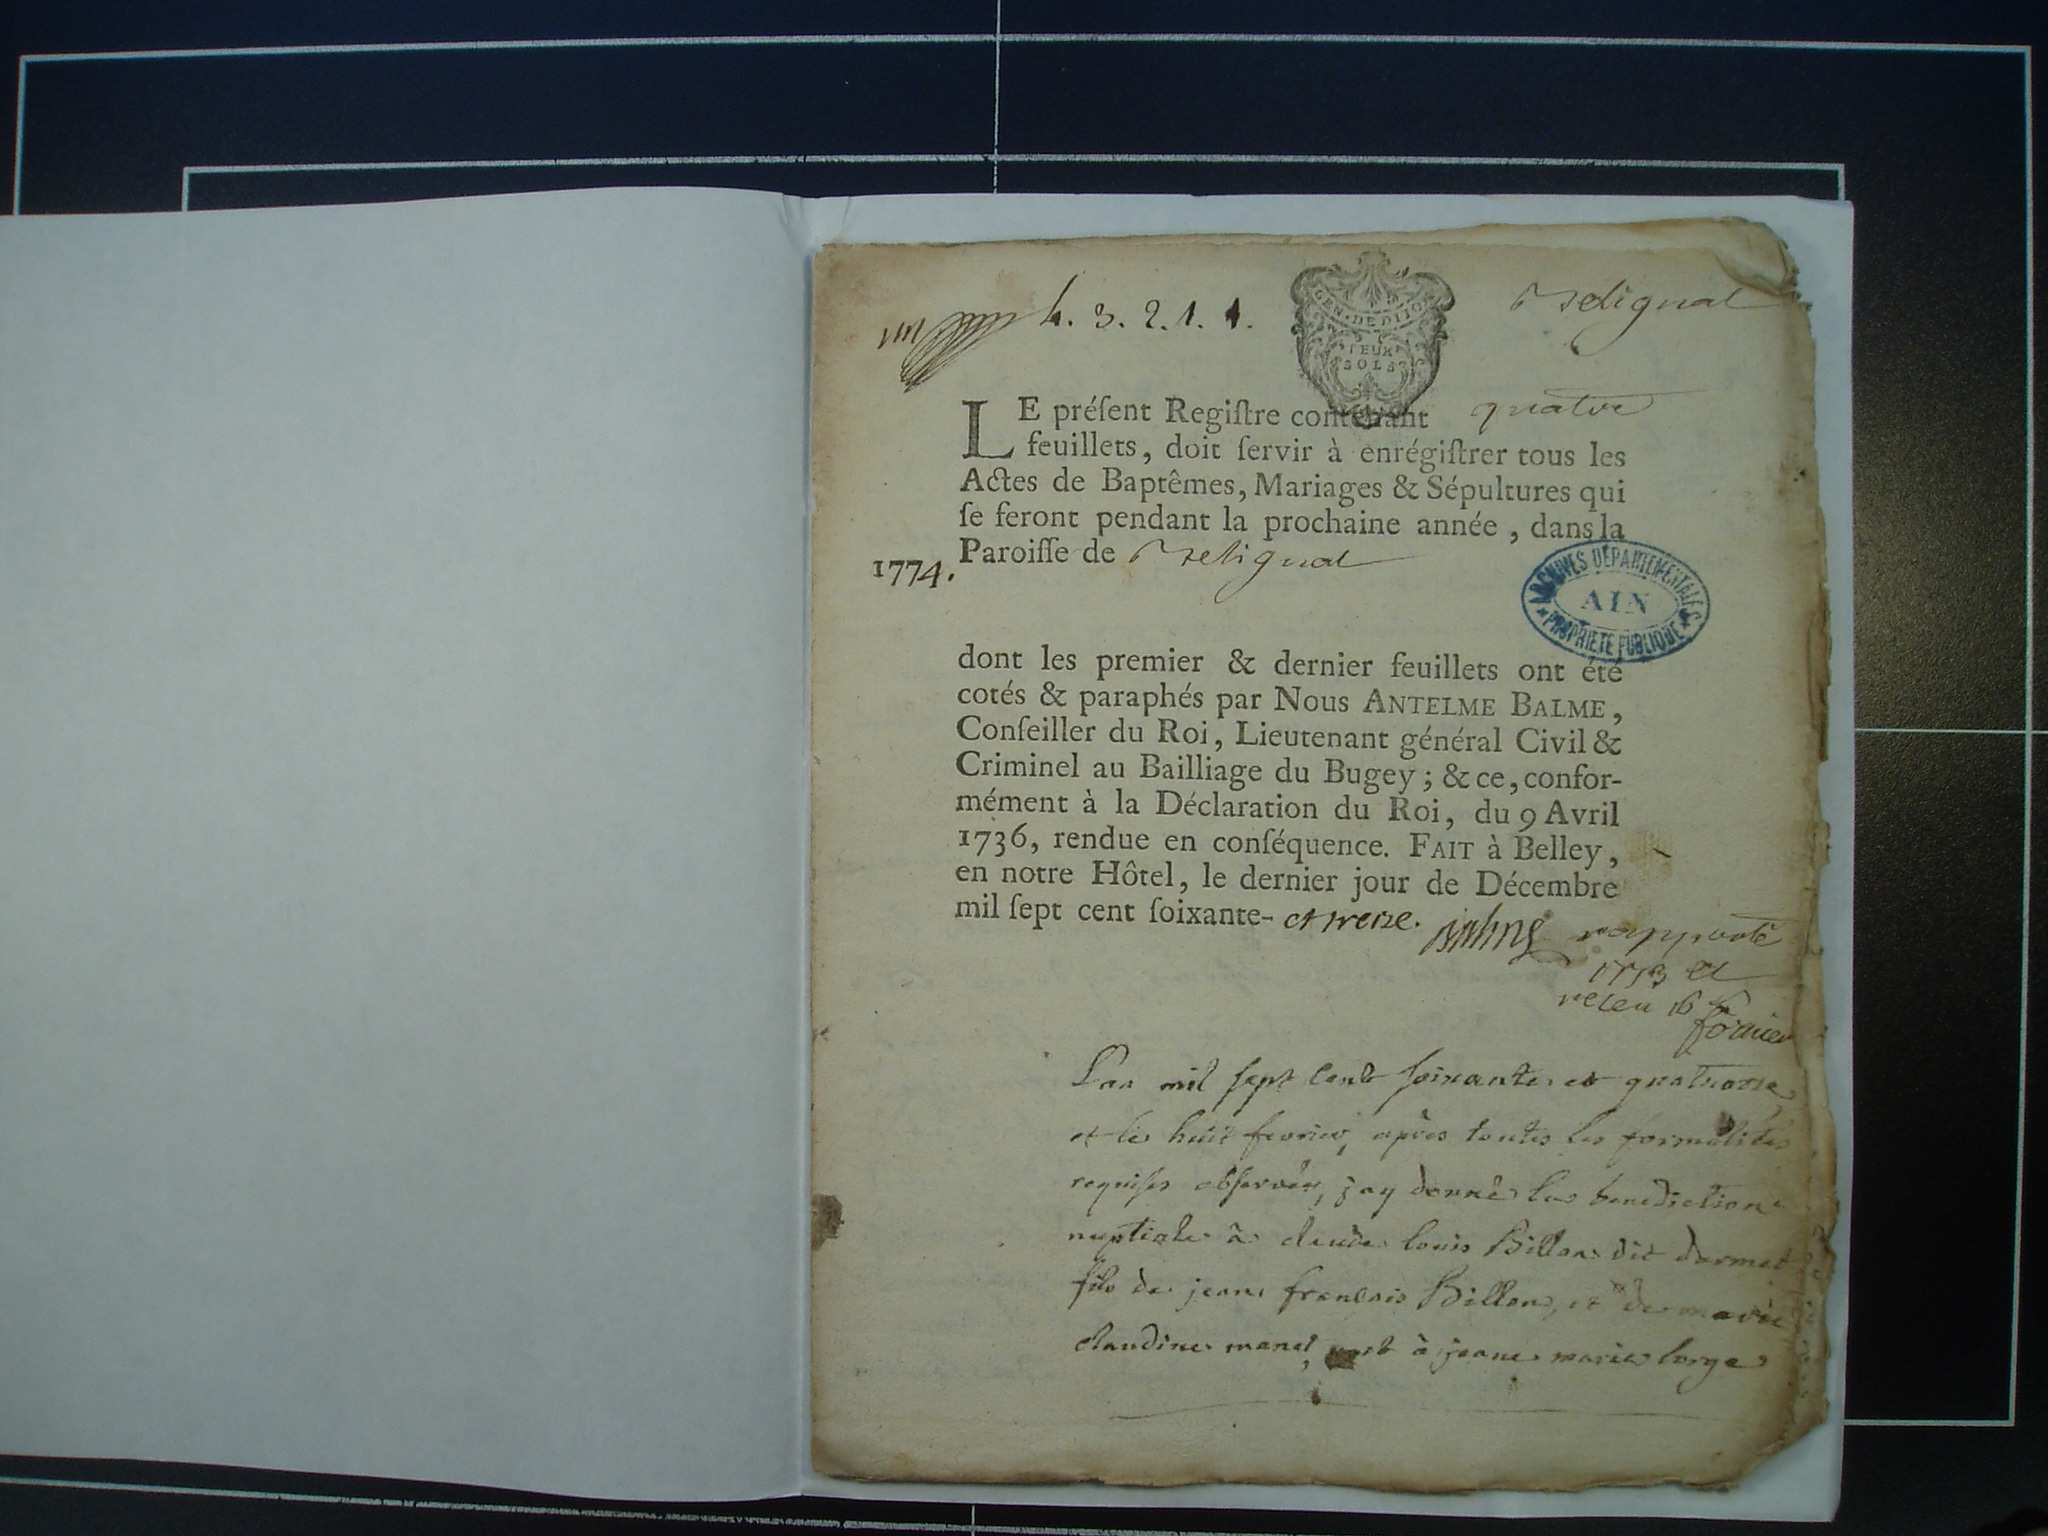 4. 3. 2. 1. 1.
GEN. DE DIJON
DEUX
SOLS
Bretignat
LE préſent Regiſtre contenant quatre
feuillets, doit ſervir à enrégiſtrer tous les
Actes de Baptêmes, Mariages & Sépultures qui
ſe feront pendant la prochaine année, dans la
1774. Paroiſſe de
ARCHIVES DÉPARTEMENTALES
AIN
PROPRIÉTÉ PUBLIQUE
dont les premier & dernier feuillets ont été
cotés & paraphés par Nous ANTELME BALME,
Conſeiller du Roi, Lieutenant général Civil &
Criminel au Bailliage du Bugey; & ce, confor-
mément à la Déclaration du Roi, du 9 Avril
1736, rendue en conſéquence. FAIT à Belley,
en notre Hôtel, le dernier jour de Décembre
mil ſept cent ſoixante- et treize. Balme
rapporté
1773 et
receu 16 s
L'an mil sept cent soixante et quatorze
et le huit fevrier, après toutes les formalités
requises observées, j'ay donné la benediction
nuptiale à claude louis Billon dit dormet
fils de jean francois Billon, et de marie
claudine manel, à jeane marie lorge